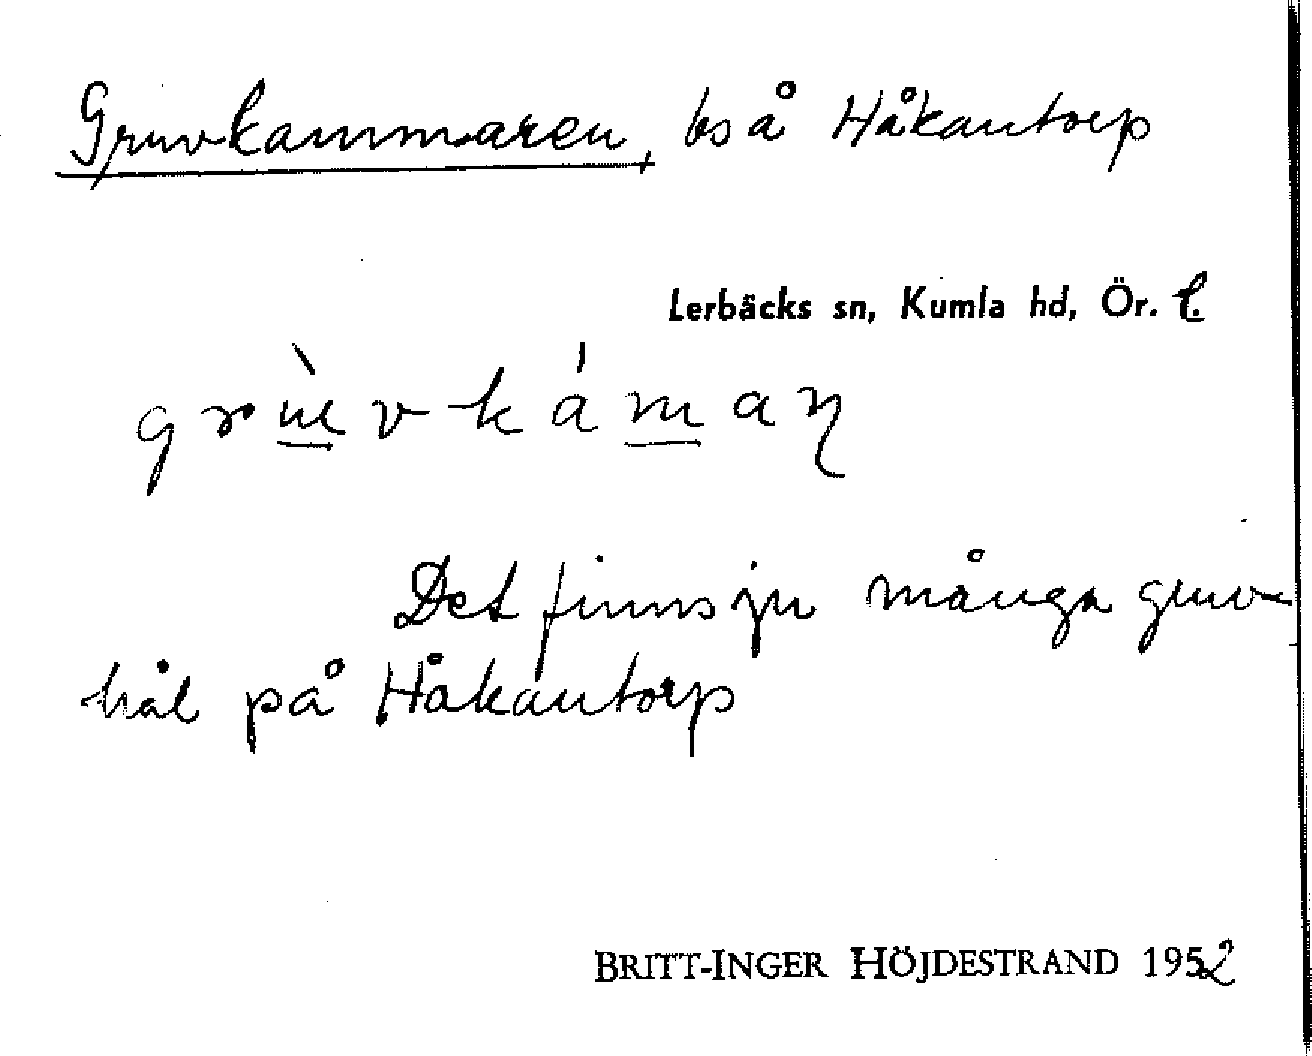 Gruvkammaren, bs å Håkantorp
Lerbäcks sn, Kumla hd, Ör. l.
Det finns ju många gruv-
hål på Håkantorp
BRITT-INGER HÖJDESTRAND 1952